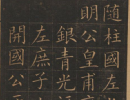 隨柱國左
明公皇甫
銀青光
左庶子
開國公